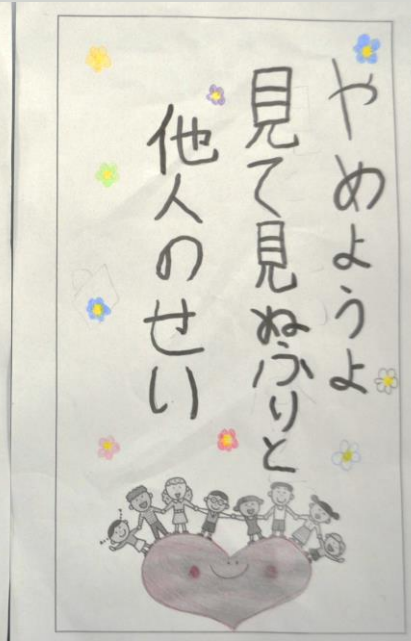 やめようよ
見て見ぬふりと
他人のせい